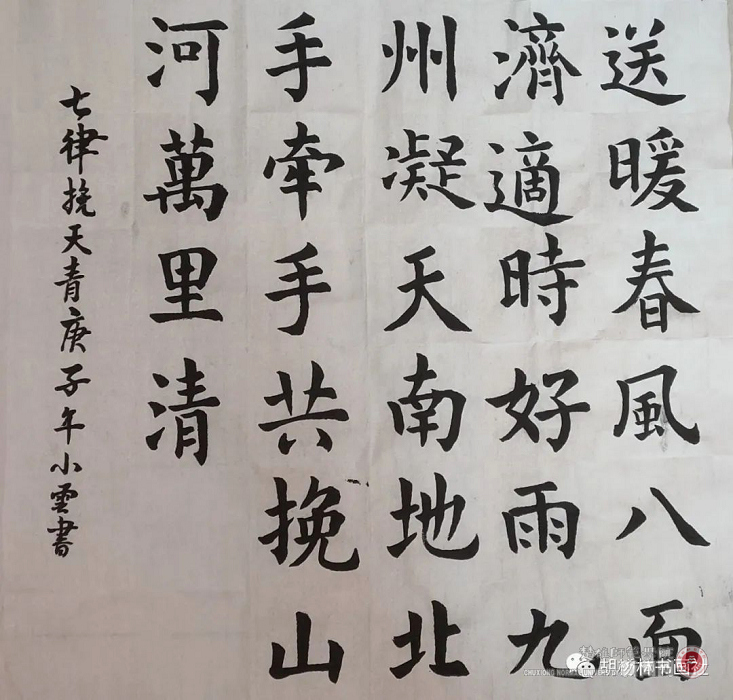 送暖春風八面
濟適時好雨九
州凝天南地北
手牽手共挽山
河萬里清
七律挽天青庚子年小雲書
胡杨林书画社